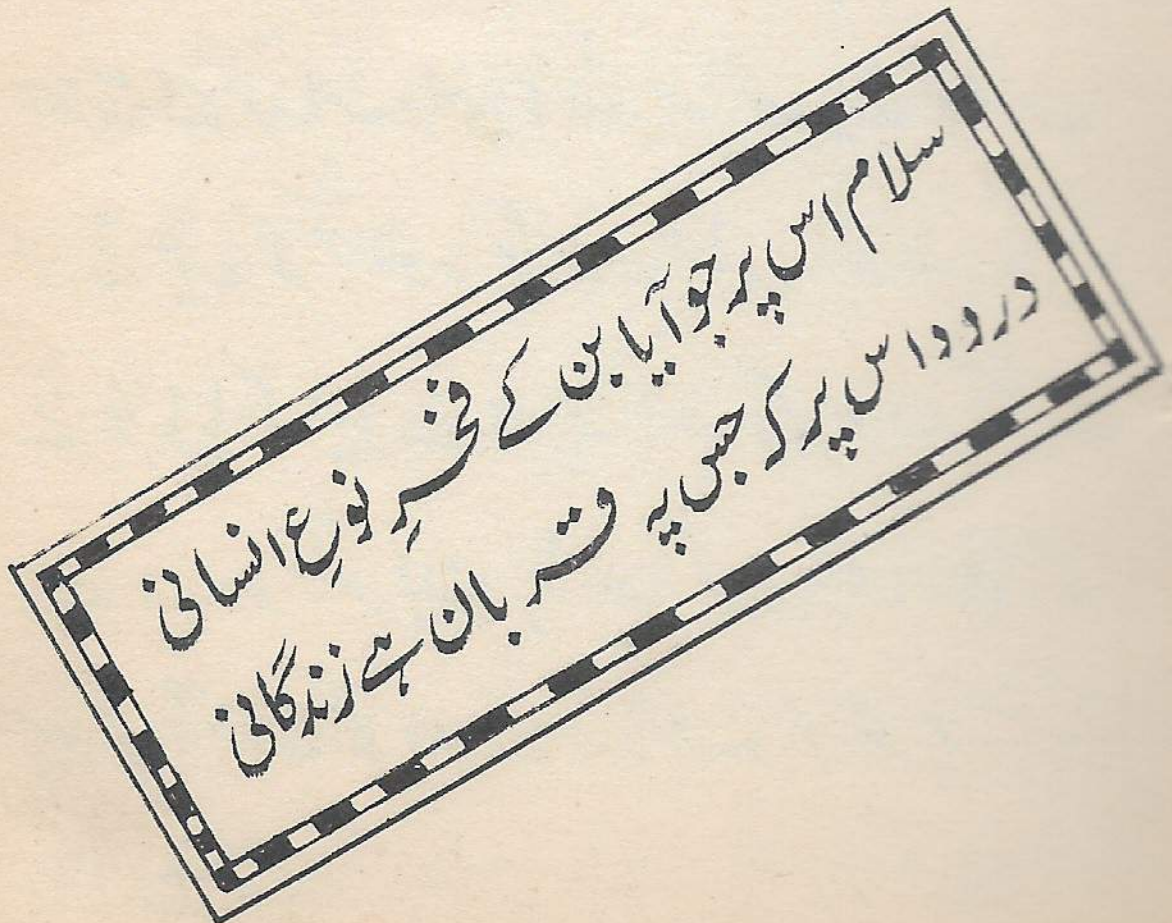 سلام اس پر جو آیا بن کے فخرِ نوعِ انسانی
درود اس پر کہ جس پہ قربان ہے زندگانی